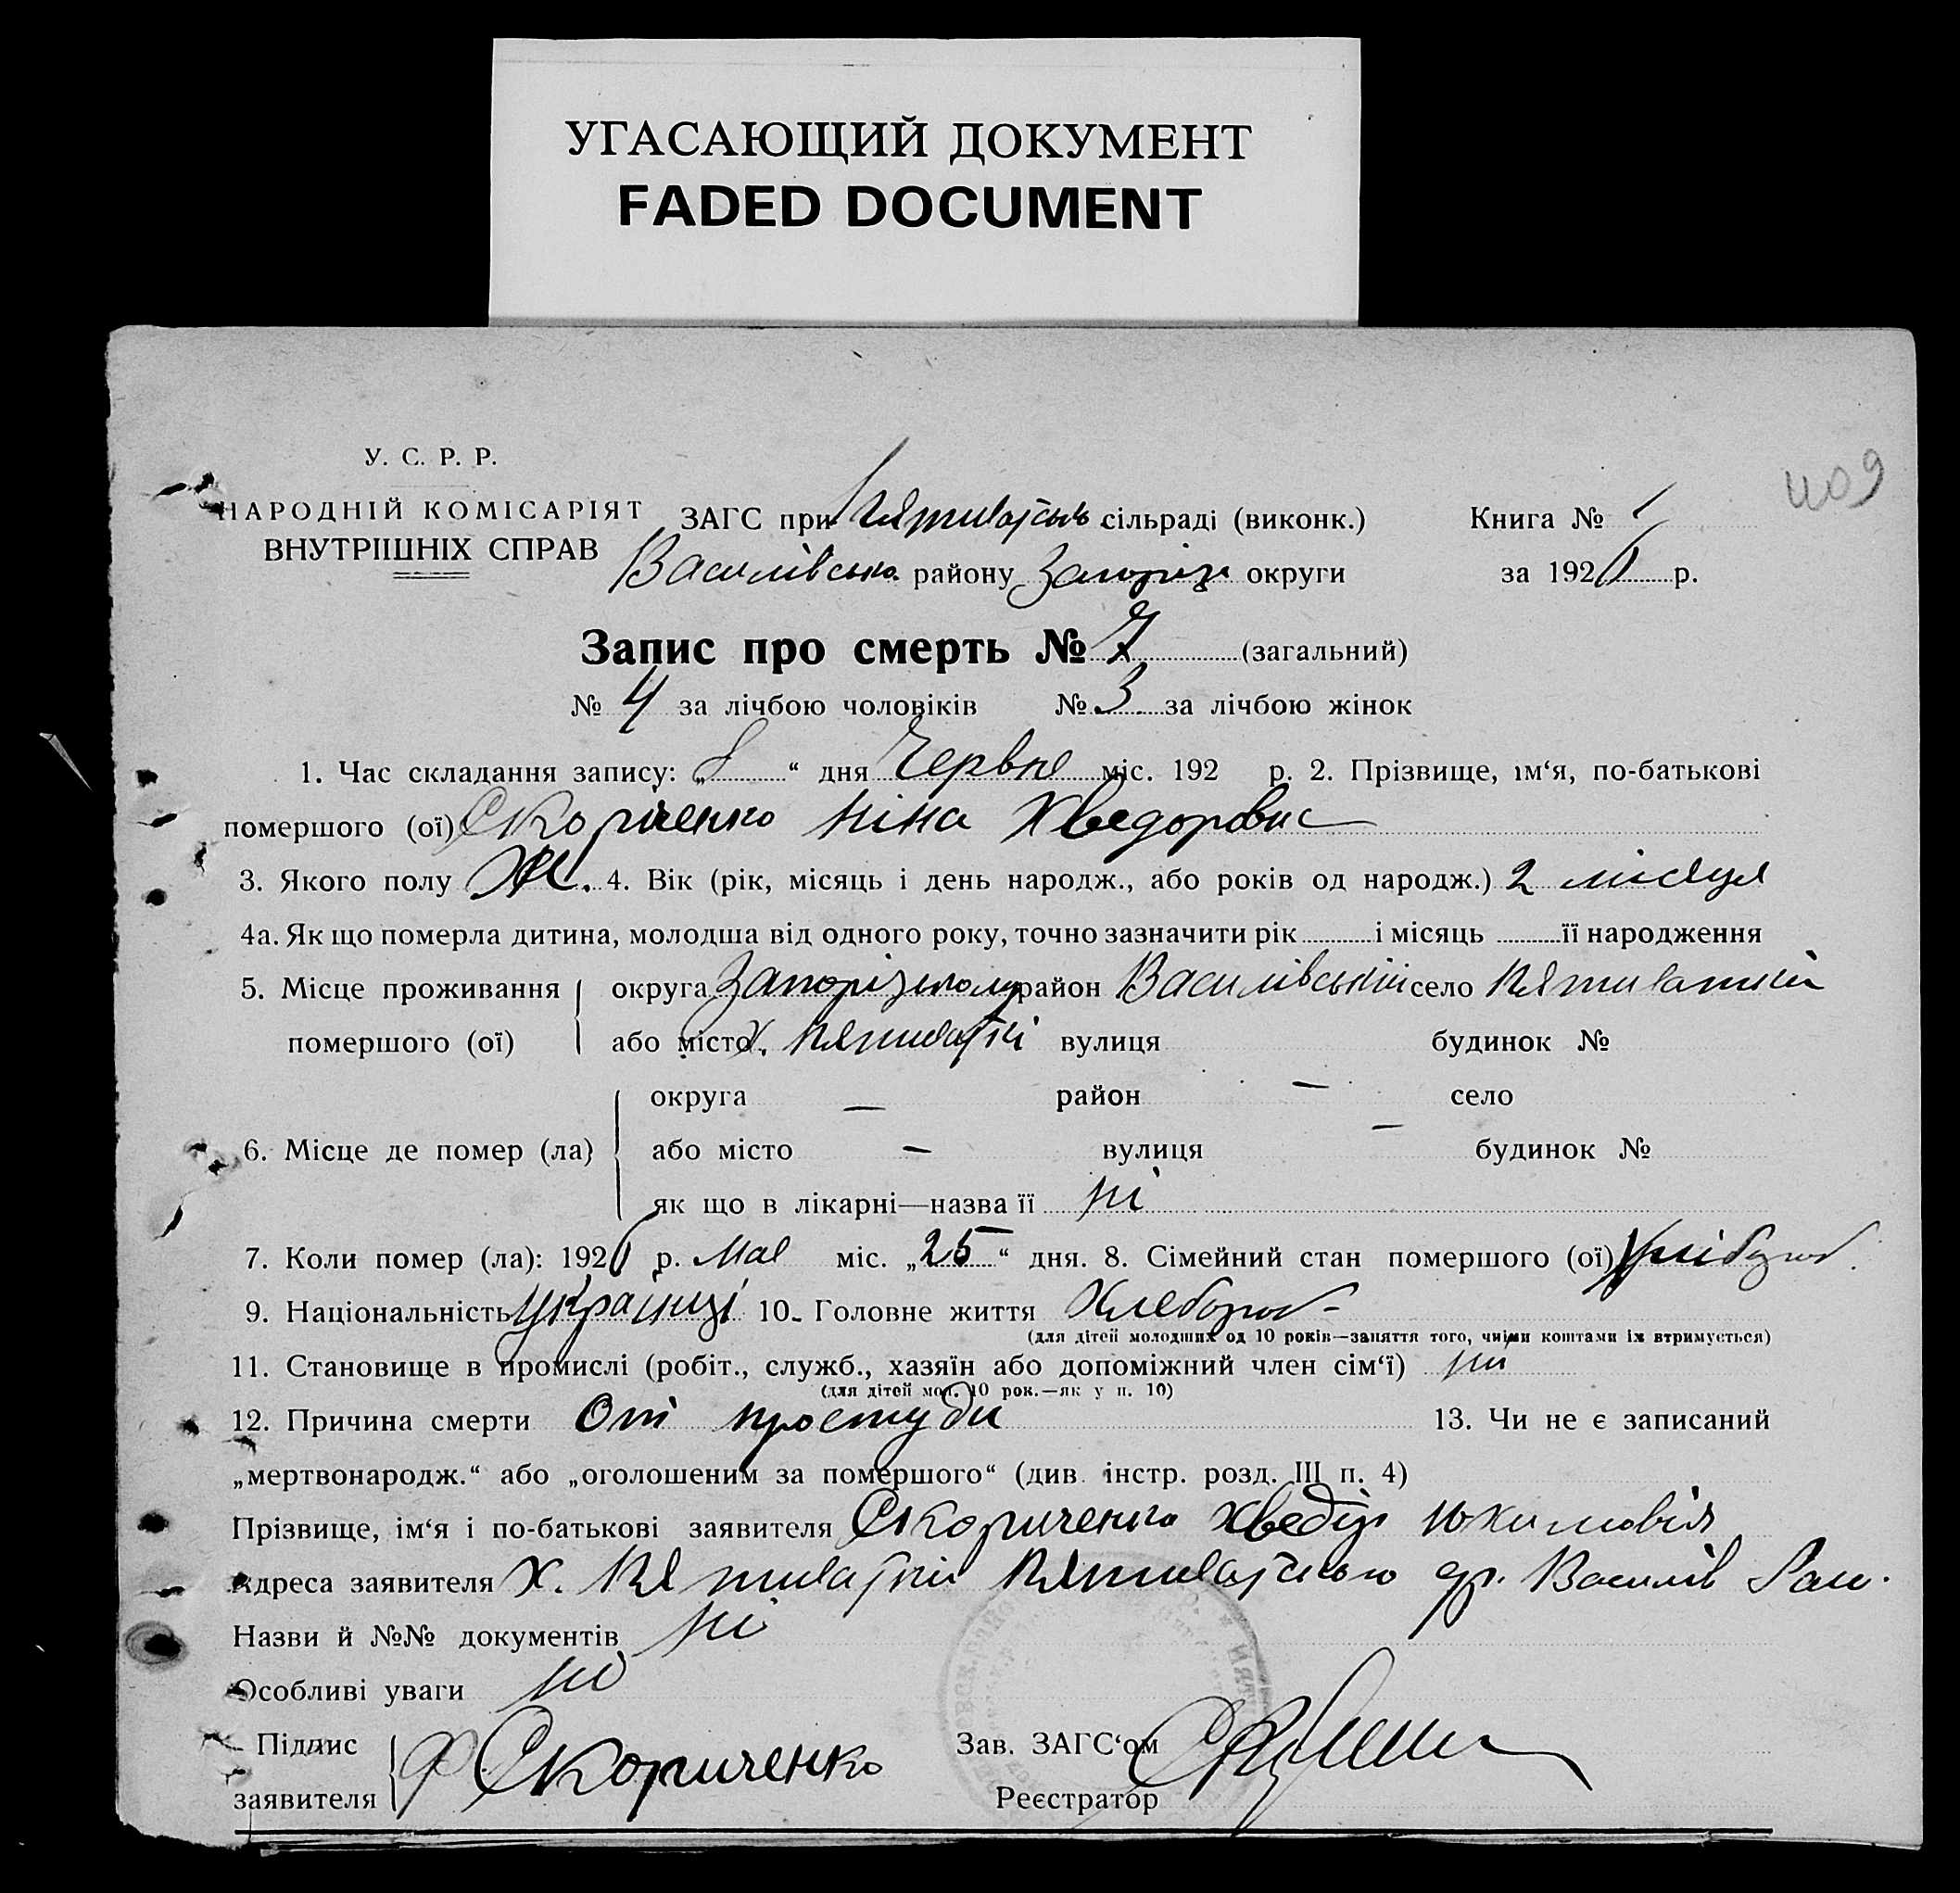 УГАСАЮЩИЙ ДОКУМЕНТ
FADED DOCUMENT
409
У. С. Р. Р.
НАРОДНІЙ КОМІСАРІЯТ
ВНУТРІШНІХ СПРАВ
ЗАГС при сільраді (виконк.)
Книга № 1
Василівсько району Запоріз округи
за 1926 р.
Запис про смерть № 7 (загальний)
№ 4 за лічбою чоловіків № 3 за лічбою жінок
1. Час складання запису: „8“ дня Червне міс. 192 р. 2. Прізвище, ім‘я, по-батькові
помершого (ої) Скориченко Ніна Хведоровна
3. Якого полу Ж. 4. Вік (рік, місяць і день народж., або років од народж.) 2 місяця
4а. Як що померла дитина, молодша від одного року, точно зазначити рік і місяць її народження
5. Місце проживання округа район Василівський село Пятихатній
помершого (ої) або місто х. Пятихатній вулиця будинок №
округа — район — село
6. Місце де помер (ла) або місто — вулиця — будинок №
як що в лікарні—назва її ні
7. Коли помер (ла): 1926 р. Мае міс. „25“ дня. 8. Сімейний стан помершого (ої)
9. Національність 10. Головне життя Хлебороб
(для дітей молодших од 10 років—заняття того, чиїми коштами їх втримується)
11. Становище в промислі (робіт., служб., хазяїн або допоміжний член сім‘ї) ні
(для дітей мол. 10 рок.—як у п. 10)
12. Причина смерти От простуди 13. Чи не є записаний
„мертвонародж.“ або „оголошеним за помершого“ (див. інстр. розд. III п. 4)
Прізвище, ім‘я і по-батькові заявителя Скориченко Хведір Юхимовіч
Адреса заявителя х. Пятихатній
Назви й №№ документів ні
Особливі уваги ні
Підпис
заявителя Ф Скориченко
Зав. ЗАГС‘ом
Реєстратор